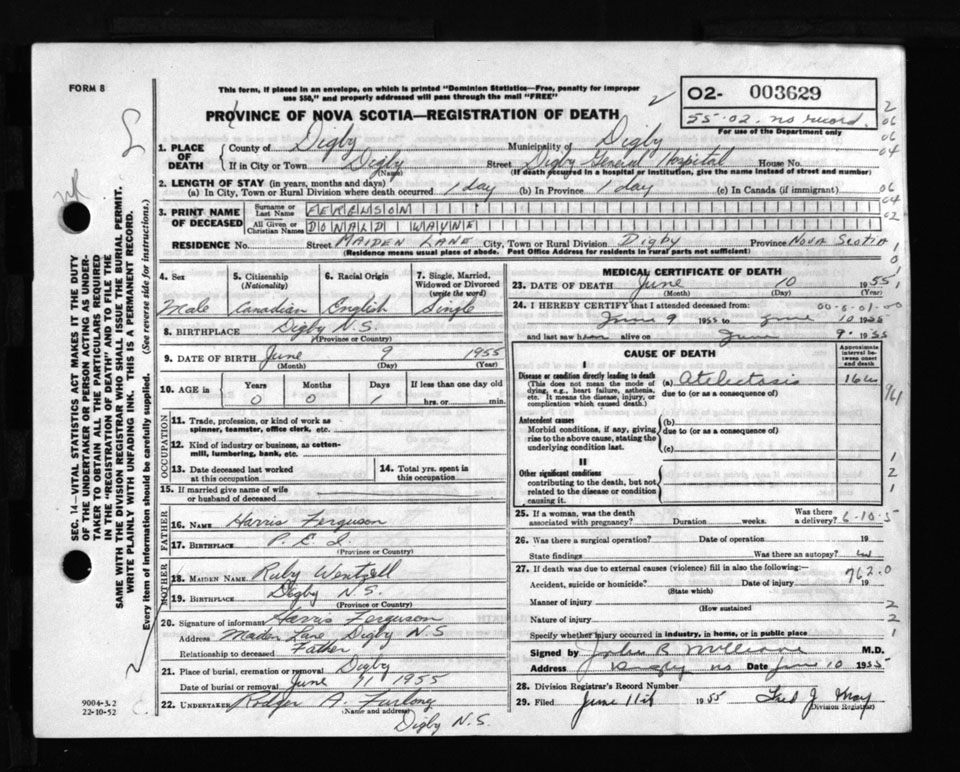 FORM 8
This form, if placed in an envelope, on which is printed "Dominion Statistics—Free, penalty for improper
use $50," and properly addressed will pass through the mail "FREE"
PROVINCE OF NOVA SCOTIA—REGISTRATION OF DEATH
02- 003629
55-02. no record.
For use of the Department only
1. PLACE OF DEATH
County of Digby Municipality of Digby
If in City or Town Digby (Name) Street Digby General Hospital House No.
(If death occurred in a hospital or institution, give the name instead of street and number)
2. LENGTH OF STAY (in years, months and days)
(a) In City, Town or Rural Division where death occurred 1 day (b) In Province 1 day (c) In Canada (if immigrant)
3. PRINT NAME OF DECEASED
Surname or Last Name FERGUSON
All Given or Christian Names DONALD WAYNE
RESIDENCE No. Street MAIDEN LANE City, Town or Rural Division Digby Province NOVA SCOTIA
(Residence means usual place of abode. Post Office Address for residents in rural parts not sufficient)
4. Sex
Male
5. Citizenship (Nationality)
Canadian
6. Racial Origin
English
7. Single, Married, Widowed or Divorced (write the word)
Single
8. BIRTHPLACE Digby N.S.
(Province or Country)
9. DATE OF BIRTH June 9 1955
(Month) (Day) (Year)
10. AGE in
Years Months Days If less than one day old
0 0 hrs. or min.
OCCUPATION
11. Trade, profession, or kind of work as spinner, teamster, office clerk, etc.
12. Kind of industry or business, as cotton-mill, lumbering, bank, etc.
13. Date deceased last worked at this occupation
14. Total yrs. spent in this occupation
15. If married give name of wife or husband of deceased
FATHER
16. NAME Harris Ferguson
17. BIRTHPLACE P.E.I.
(Province or Country)
MOTHER
18. MAIDEN NAME Ruby Wentzell
19. BIRTHPLACE Digby N.S.
(Province or Country)
20. Signature of informant Harris Ferguson
Address Maden Lane, Digby N.S
Relationship to deceased Father
21. Place of burial, cremation or removal Digby
Date of burial or removal June 11 1955
22. UNDERTAKER Rodger A. Furlong
(Name and address)
Digby N.S.
MEDICAL CERTIFICATE OF DEATH
23. DATE OF DEATH June 10 1955
(Month) (Day) (Year)
24. I HEREBY CERTIFY that I attended deceased from
June 9 1955 to June 10 1955
and last saw him alive on June 9 1955
CAUSE OF DEATH
Approximate interval between onset and death
I
Disease or condition directly leading to death
(This does not mean the mode of dying, e.g., heart failure, asthenia, etc. It means the disease, injury, or complication which caused death.)
(a) Atelectasis
due to (or as a consequence of)
Antecedent causes
Morbid conditions, if any, giving rise to the above cause, stating the underlying condition last.
(b)
due to (or as a consequence of)
(c)
II
Other significant conditions
contributing to the death, but not related to the disease or condition causing it.
25. If a woman, was the death associated with pregnancy? Duration weeks. Was there a delivery?
6-10-5
26. Was there a surgical operation? Date of operation 19
State findings Was there an autopsy?
27. If death was due to external causes (violence) fill in also the following:—
762.0
Accident, suicide or homicide? Date of injury 19
(State which)
Manner of injury
(How sustained
Nature of injury
Specify whether injury occurred in industry, in home, or in public place
Signed by M.D.
Address Digby NS Date June 10 1955
28. Division Registrar's Record Number
29. Filed June 11th 1955 Fred J. May
Division Registrar
SEC. 14—VITAL STATISTICS ACT MAKES IT THE DUTY
OF THE UNDERTAKER OR PERSON ACTING AS UNDER-
TAKER TO OBTAIN ALL THE PARTICULARS REQUIRED
IN THE "REGISTRATION OF DEATH" AND TO FILE THE
SAME WITH THE DIVISION REGISTRAR WHO SHALL ISSUE THE BURIAL PERMIT.
WRITE PLAINLY WITH UNFADING INK. THIS IS A PERMANENT RECORD.
Every item of information should be carefully supplied. (See reverse side for instructions.)
9004-3.2
22-10-52